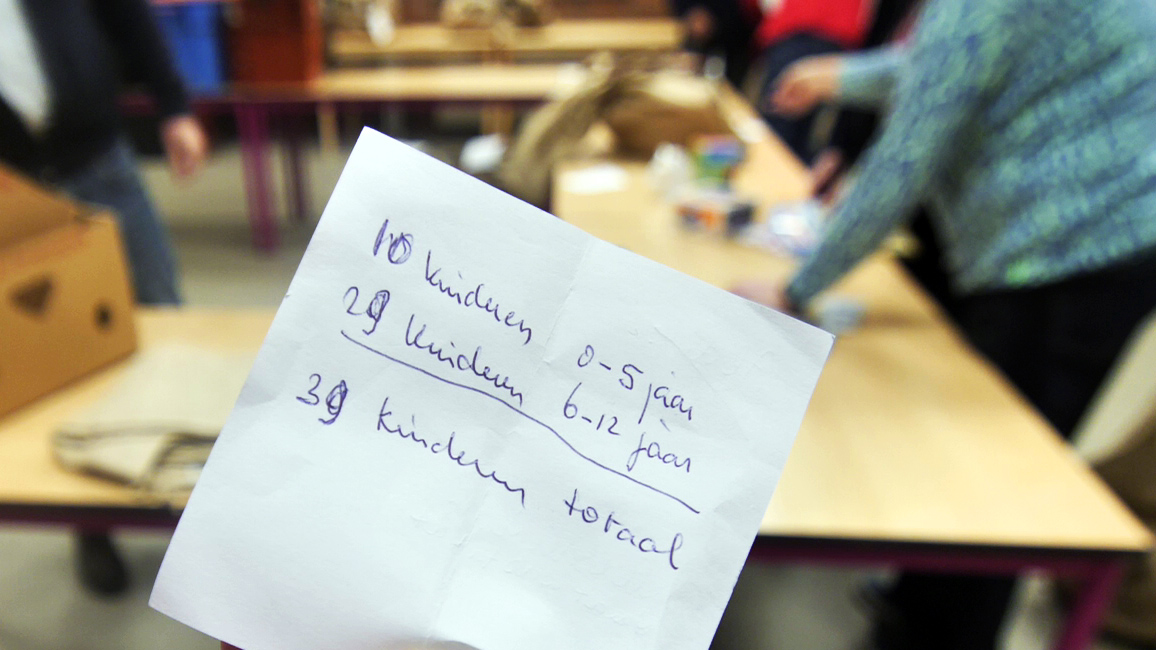 10 kinderen 0-5 jaar
29 kinderen 6-12 jaar
39 kinderen totaal